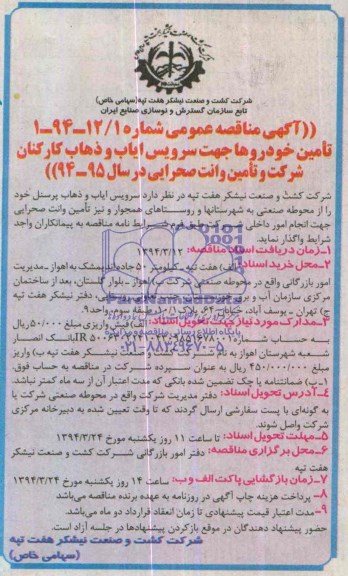 شرکت کشت و صنعت نیشکر هفت تپه (سهامی خاص)
تابع سازمان گسترش و نوسازی صنایع ایران
((آگهی مناقصه عمومی شماره ۱۲/۱-۹۴-۱
تأمین خودروها جهت سرویس ایاب و ذهاب کارکنان
شرکت و تأمین وانت صحرایی در سال ۹۵-۹۴))
شرکت کشت و صنعت نیشکر هفت تپه در نظر دارد سرویس ایاب و ذهاب پرسنل خود
را از محوطه صنعتی به شهرستانها و روستاهای همجوار و نیز تأمین وانت صحرایی
جهت انجام امور داخلی شرایط نامه مناقصه به پیمانکاران واجد
شرایط واگذار نماید.
۱-زمان دریافت اسناد مناقصه: ۱۳۹۴/۳/۱۲
۲-محل خرید اسناد: الف) هفت تپه - کیلومتر ۵۰ جاده اندیمشک به اهواز - مدیریت
امور بازرگانی واقع در محوطه صنعتی شرکت ب) اهواز - بلوار گلستان، بعد از ساختمان
مرکزی سازمان آب و برق دفتر نیشکر هفت تپه
ج) تهران - یوسف آباد، خیابان طبقه سوم، واحد ۹.
۳-مدارک مورد نیاز جهت تحویل اسناد: الف) فیش واریزی مبلغ ۵۰۰/۰۰۰ ریال
بانک انصار
شعبه شهرستان اهواز به نام نیشکر هفت تپه ب) واریز
مبلغ ۴۵۰/۰۰۰/۰۰۰ ریال به عنوان سپرده شرکت در مناقصه به حساب فوق.
۱-ب) ضمانتنامه یا چک تضمین شده بانکی که مدت اعتبار آن از سه ماه کمتر نباشد.
۴-آدرس تحویل اسناد: دفتر مدیریت شرکت واقع در محوطه صنعتی شرکت یا
به گونه‌ای با پست سفارشی ارسال گردند که تا وقت تعیین شده به دبیرخانه مرکزی
شرکت واصل شوند.
۵-مهلت تحویل اسناد: تا ساعت ۱۱ روز یکشنبه مورخ ۱۳۹۴/۳/۲۴
۶-محل برگزاری مناقصه: دفتر امور بازرگانی شرکت کشت و صنعت نیشکر
هفت تپه
۷-زمان بازگشایی پاکت الف و ب: ساعت ۱۴ روز یکشنبه مورخ ۱۳۹۴/۳/۲۴
۸- پرداخت هزینه چاپ آگهی در روزنامه به عهده برنده مناقصه می‌باشد
۹- مدت اعتبار قیمت پیشنهادی تا زمان انعقاد قرارداد دو ماه می‌باشد.
حضور پیشنهاد دهندگان در موقع بازکردن پیشنهادها در جلسه آزاد است.
شرکت کشت و صنعت نیشکر هفت تپه
(سهامی خاص)